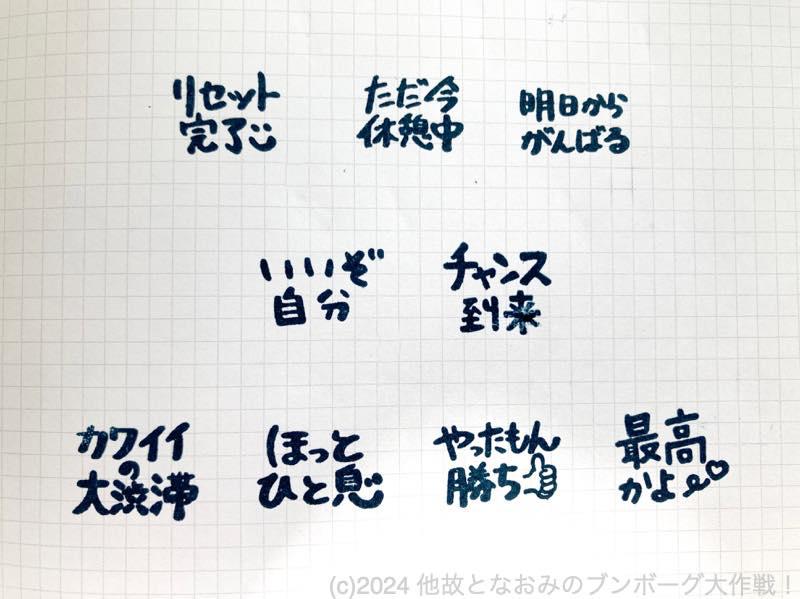 リセット
完了
ただ今
休憩中
明日から
がんばる
いいぞ
自分
チャンス
到来
カワイイ
の
大渋滞
ほっと
ひと息
やったもん
勝ち
最高
かよ
(c)2024 他故となおみのブンボーグ大作戦！